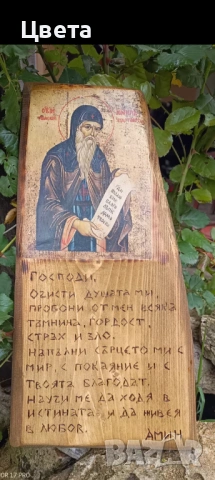 Цвета
ГОСПОДИ,
ОЧИСТИ ДУШАТА МИ,
ПРОГОНИ ОТ МЕН ВСЯКА
ТЪМНИНА, ГОРДОСТ,
СТРАХ И ЗЛО.
НАПЪЛНИ СЪРЦЕТО МИ С
МИР, С ПОКАЯНИЕ И С
ТВОЯТА БЛАГОДАТ.
НАУЧИ МЕ ДА ХОДЯ В
ИСТИНАТА, И ДА ЖИВЕЯ
В ЛЮБОВ.
АМИН
bazar